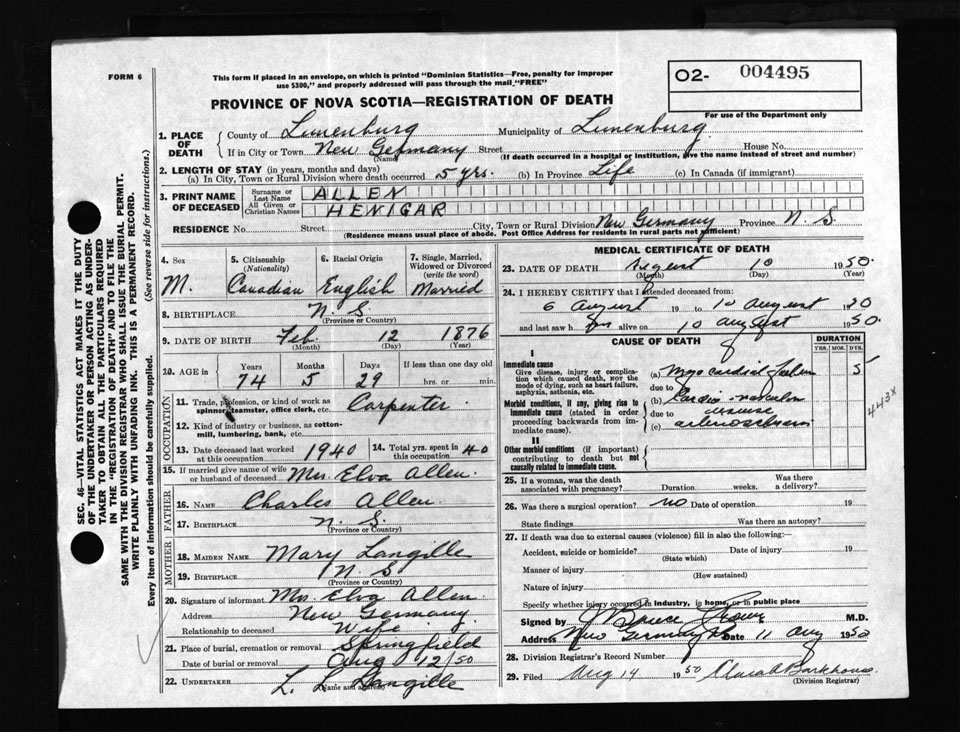 FORM 6
This form if placed in an envelope, on which is printed "Dominion Statistics—Free, penalty for improper
use $300," and properly addressed will pass through the mail, "FREE"
O2- 004495
For use of the Department only
PROVINCE OF NOVA SCOTIA—REGISTRATION OF DEATH
SEC. 46—VITAL STATISTICS ACT MAKES IT THE DUTY
OF THE UNDERTAKER OR PERSON ACTING AS UNDER-
TAKER TO OBTAIN ALL THE PARTICULARS REQUIRED
IN THE "REGISTRATION OF DEATH" AND TO FILE THE
SAME WITH THE DIVISION REGISTRAR WHO SHALL ISSUE THE BURIAL PERMIT.
WRITE PLAINLY WITH UNFADING INK. THIS IS A PERMANENT RECORD.
Every item of information should be carefully supplied. (See reverse side for instructions.)
1. PLACE OF DEATH County of Lunenburg Municipality of Lunenburg
If in City or Town New Germany (Name) Street House No.
(If death occurred in a hospital or institution, give the name instead of street and number)
2. LENGTH OF STAY (in years, months and days)
(a) In City, Town or Rural Division where death occurred 5 yrs. (b) In Province Life (c) In Canada (if immigrant)
3. PRINT NAME OF DECEASED Surname or Last Name ALLEN
All Given or Christian Names HENIGAR
RESIDENCE No. Street City, Town or Rural Division New Germany Province N. S.
(Residence means usual place of abode. Post Office Address for residents in rural parts not sufficient)
4. Sex M.
5. Citizenship (Nationality) Canadian
6. Racial Origin English
7. Single, Married, Widowed or Divorced (write the word) Married
8. BIRTHPLACE N. S.
(Province or Country)
9. DATE OF BIRTH Feb. 12 1876
(Month) (Day) (Year)
10. AGE in Years Months Days If less than one day old
74 5 29 hrs. or min.
OCCUPATION
11. Trade, profession, or kind of work as spinner, teamster, office clerk, etc. Carpenter
12. Kind of industry or business, as cotton-mill, lumbering, bank, etc.
13. Date deceased last worked at this occupation 1940
14. Total yrs. spent in this occupation 40
15. If married give name of wife or husband of deceased Mrs. Elva Allen.
FATHER
16. NAME Charles Allen.
17. BIRTHPLACE N. S.
(Province or Country)
MOTHER
18. MAIDEN NAME Mary Langille
19. BIRTHPLACE N. S
(Province or Country)
20. Signature of informant Mrs. Elva Allen.
Address New Germany
Relationship to deceased Wife
21. Place of burial, cremation or removal Springfield
Date of burial or removal Aug 12/50
22. UNDERTAKER L. L. Langille
(Name and address)
MEDICAL CERTIFICATE OF DEATH
23. DATE OF DEATH August 10 1950.
(Month) (Day) (Year)
24. I HEREBY CERTIFY that I attended deceased from:
6 August 19 to 10 August 1950
and last saw him alive on 10 August 1950.
CAUSE OF DEATH
DURATION
YRS. MOS. DYS.
I
Immediate cause
Give disease, injury or complication which caused death, NOT the mode of dying, such as heart failure, asphyxia, asthenia, etc.
(a) Myocardial 5
due to
Morbid conditions, if any, giving rise to immediate cause (stated in order proceeding backwards from immediate).
(b) Cardio-vascular
due to disease
(c)
443X
II
Other morbid conditions (if important) contributing to death but not causally related to immediate cause.
25. If a woman, was the death associated with pregnancy? Duration weeks. Was there a delivery?
26. Was there a surgical operation? no Date of operation 19
State findings Was there an autopsy?
27. If death was due to external causes (violence) fill in also the following:—
Accident, suicide or homicide? Date of injury 19
(State which)
Manner of injury
(How sustained)
Nature of injury
Specify whether injury occurred in industry, in home, or in public place
Signed by M.D.
Address New Germany NS Date 11 Aug 1950
28. Division Registrar's Record Number
29. Filed Aug 14 1950 Barkhouse.
(Division Registrar)